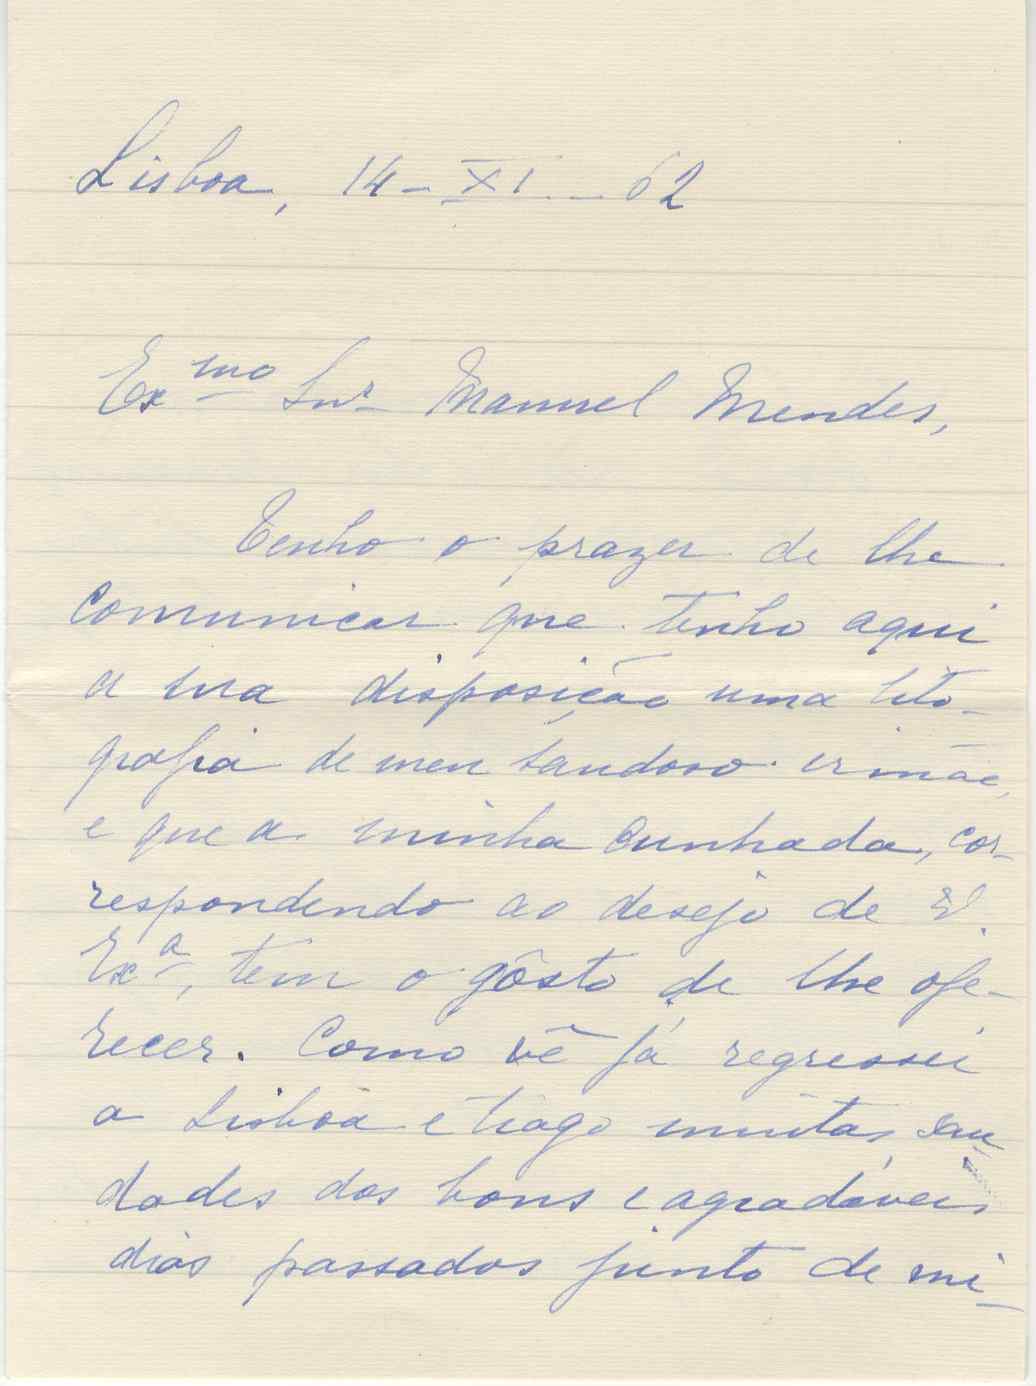 Lisboa, 14-XI-62
Exmo Snr Manuel Mendes,
Tenho o prazer de lhe
comunicar que tenho aqui
a sua disposição uma lito-
grafia de meu saudoso irmão,
e que a minha cunhada, cor-
respondendo ao desejo de V.
Exª, tem o gôsto de lhe ofe-
recer. Como vê já regressei
a Lisboa e trago muitas sau-
dades dos bons e agradáveis
dias passados junto de mi-